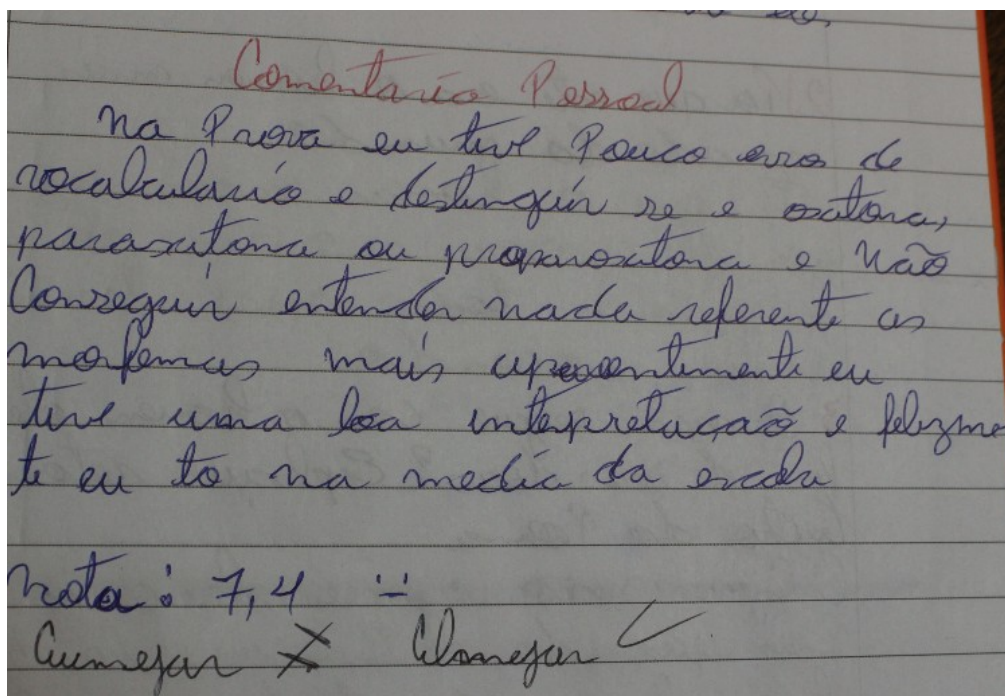 Comentario Pessoal
na Prova eu tive Pouco erros de
vocabulario e destinguir se e oxitona,
paraxitona ou proparoxitona e não
Conseguir entender nada referente as
morfemas mais aparentimente eu
tive uma boa interpretação e felizme
te eu to na media da escola
nota: 7,4 :-
X ✓